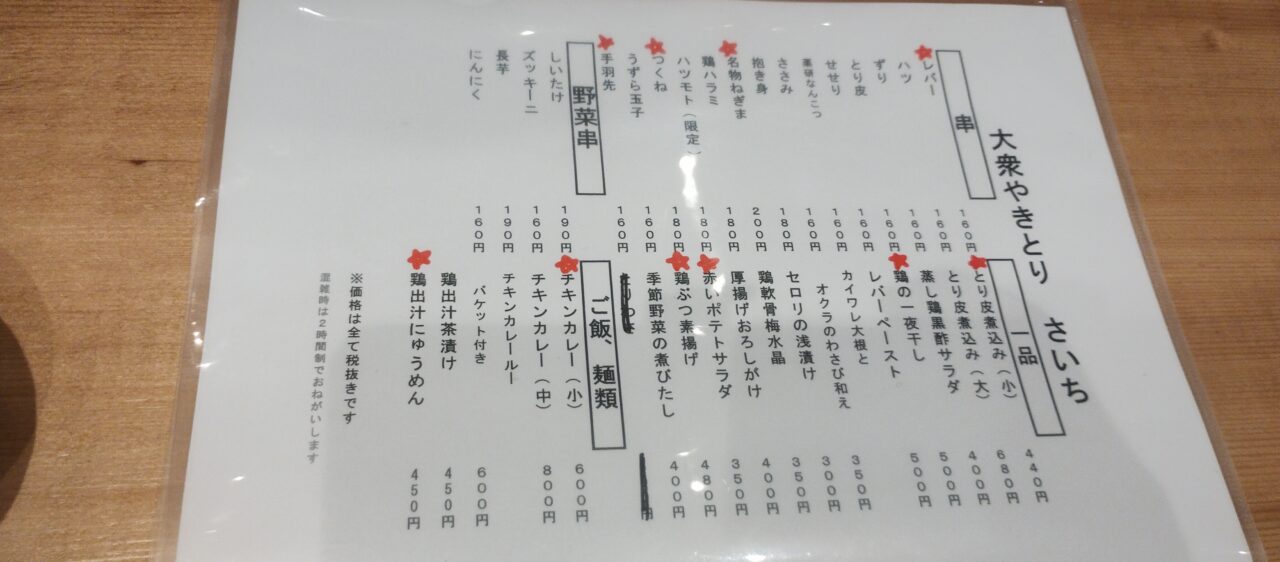 大衆やきとり さいち
串
レバー 160円
ハツ 160円
ずり 160円
とり皮 160円
せせり 160円
薬研なんこつ 160円
ささみ 160円
抱き身 180円
名物ねぎま 200円
鶏ハラミ 180円
ハツモト（限定） 180円
つくね 180円
うずら玉子 160円
手羽先 160円
野菜串
しいたけ 190円
ズッキーニ 160円
長芋 190円
にんにく 160円
一品
とり皮煮込み（小） 440円
とり皮煮込み（大） 680円
蒸し鶏黒酢サラダ 400円
鶏の一夜干し 500円
レバーペースト 500円
カイワレ大根と
オクラのわさび和え 350円
セロリの浅漬け 300円
鶏軟骨梅水晶 350円
厚揚げおろしがけ 400円
赤いポテトサラダ 350円
鶏ぶつ素揚げ 480円
季節野菜の煮びたし 400円
ご飯、麺類
チキンカレー（小） 600円
チキンカレー（中） 800円
チキンカレールー
バケット付き 600円
鶏出汁茶漬け 450円
鶏出汁にゅうめん 450円
※価格は全て税抜きです
混雑時は２時間制でおねがいします